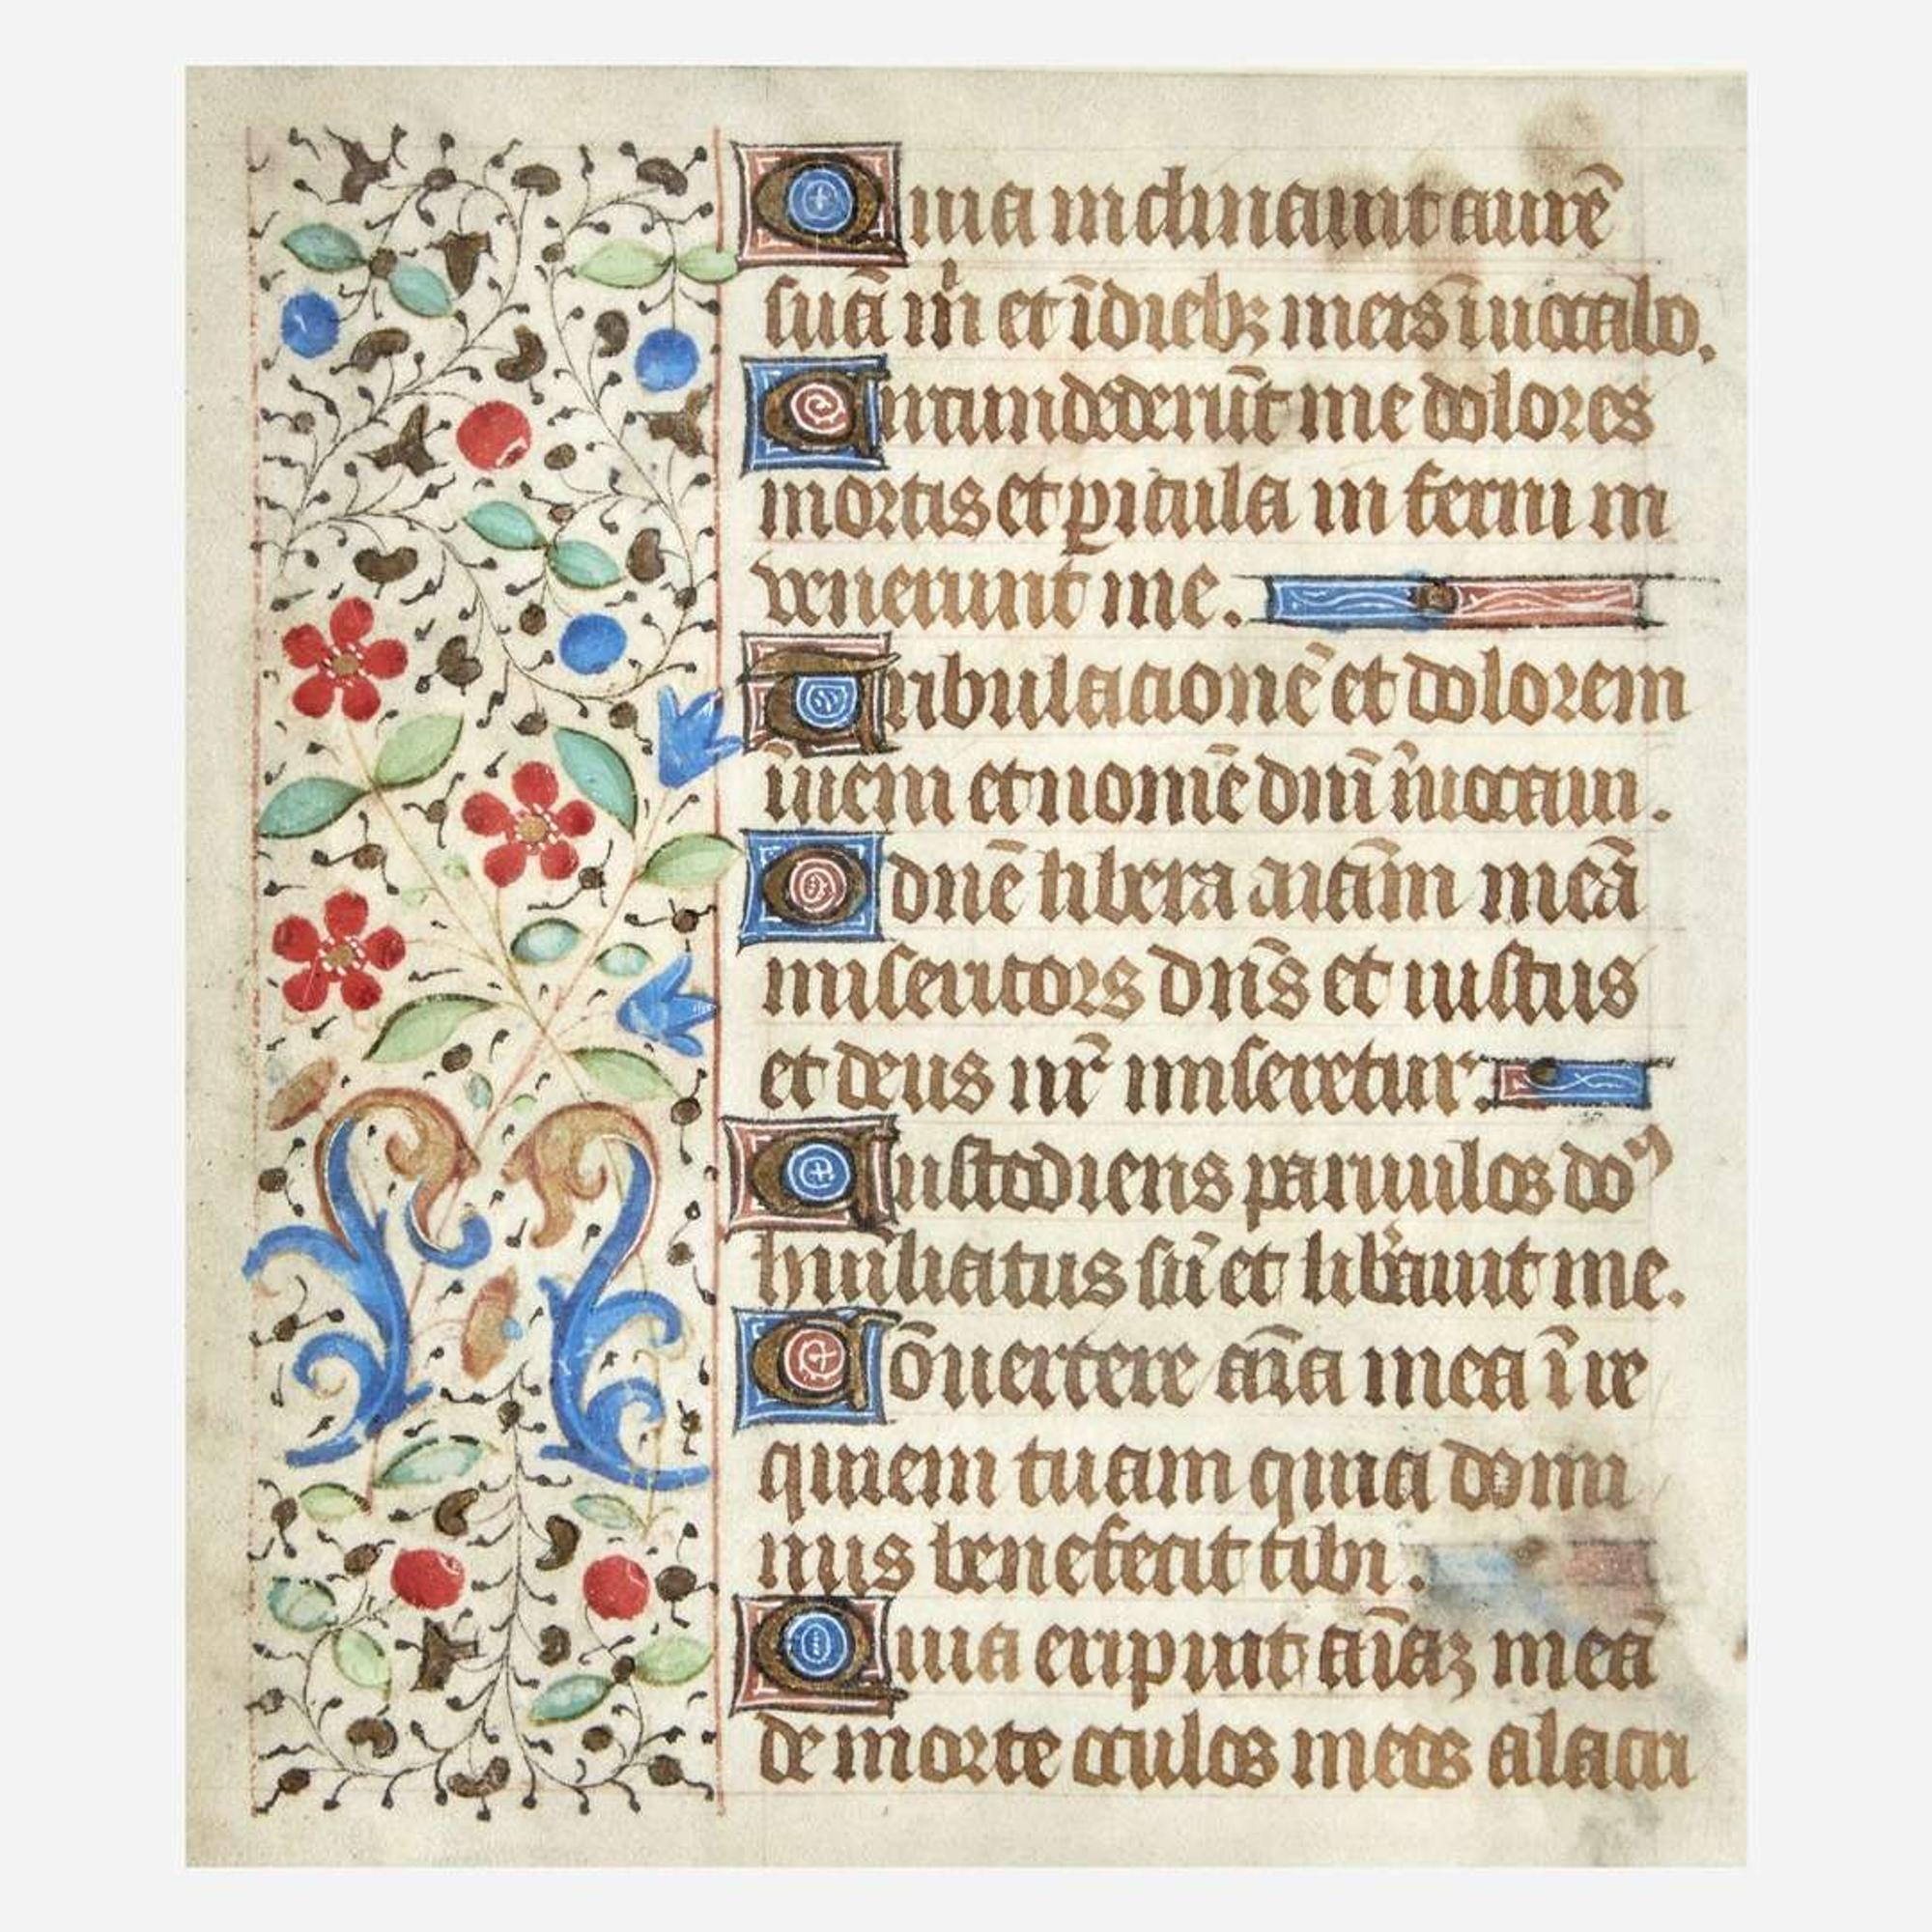 Quia inclinauit aurē
suā m̄ et ī dieb; meis īuocabo.
Circundederūt me dolores
mortis et ꝑicula in ferni in
uenerunt me.
Tribulacionē et dolorem
īueni et nomē dnī īuocaui.
O dn̄e libera aīam meā
misericors dn̄s et iustus
et deus nr̄ miseretur.
Custodiens paruulos do᷒
humiliatus sū et lib̓auit me.
Cōuertere aīa mea ī re
quiem tuam quia domi
nus benefecit tibi.
Quia eripuit aīaꝫ meā
de morte oculos meos a lacri